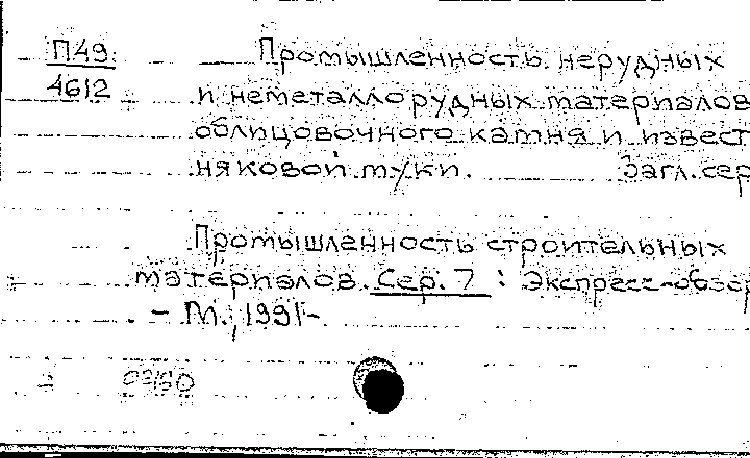 П49 Промышленность нерудных
4612 и неметаллорудных материалов
облицовочного камня и извест
няковой муки. Загл. сер
Промышленность строительных
материалов. Сер. 7 : Экспресс-обзор
– М., 1991–